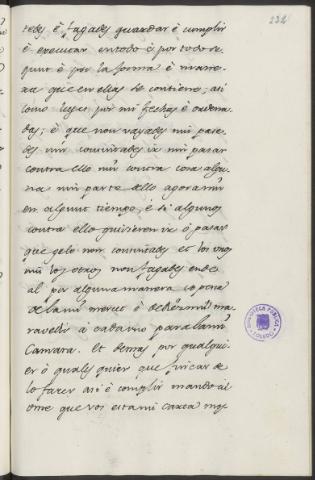 232
redes é fagades guardar é cumplir
é executar en todo é por todo se
gunt é por la forma é mane-
ra que en ellas se contiene; asi
como leyes por mi fechas é ordena-
das; é que non vayades nin pase-
des nin consintades ir nin pasar
contra ello nin contra cosa algu-
na nin parte dello agora nin
en algunt tiempo, é si algunos
contra ello quisieren ir ó pasar
que gelo non consintades et los unos
nin los otros non fagades ende
al por alguna manera so pena
de la mi merced é de diez mil ma-
ravedis á cada uno para la mi
Camara. Et demas por qualqui-
er ó quales quier que fincar de
lo facer asi é complir mando al
ome que vos esta mi carta mos-
BIBLIOTECA PUBLICA
TOLEDO